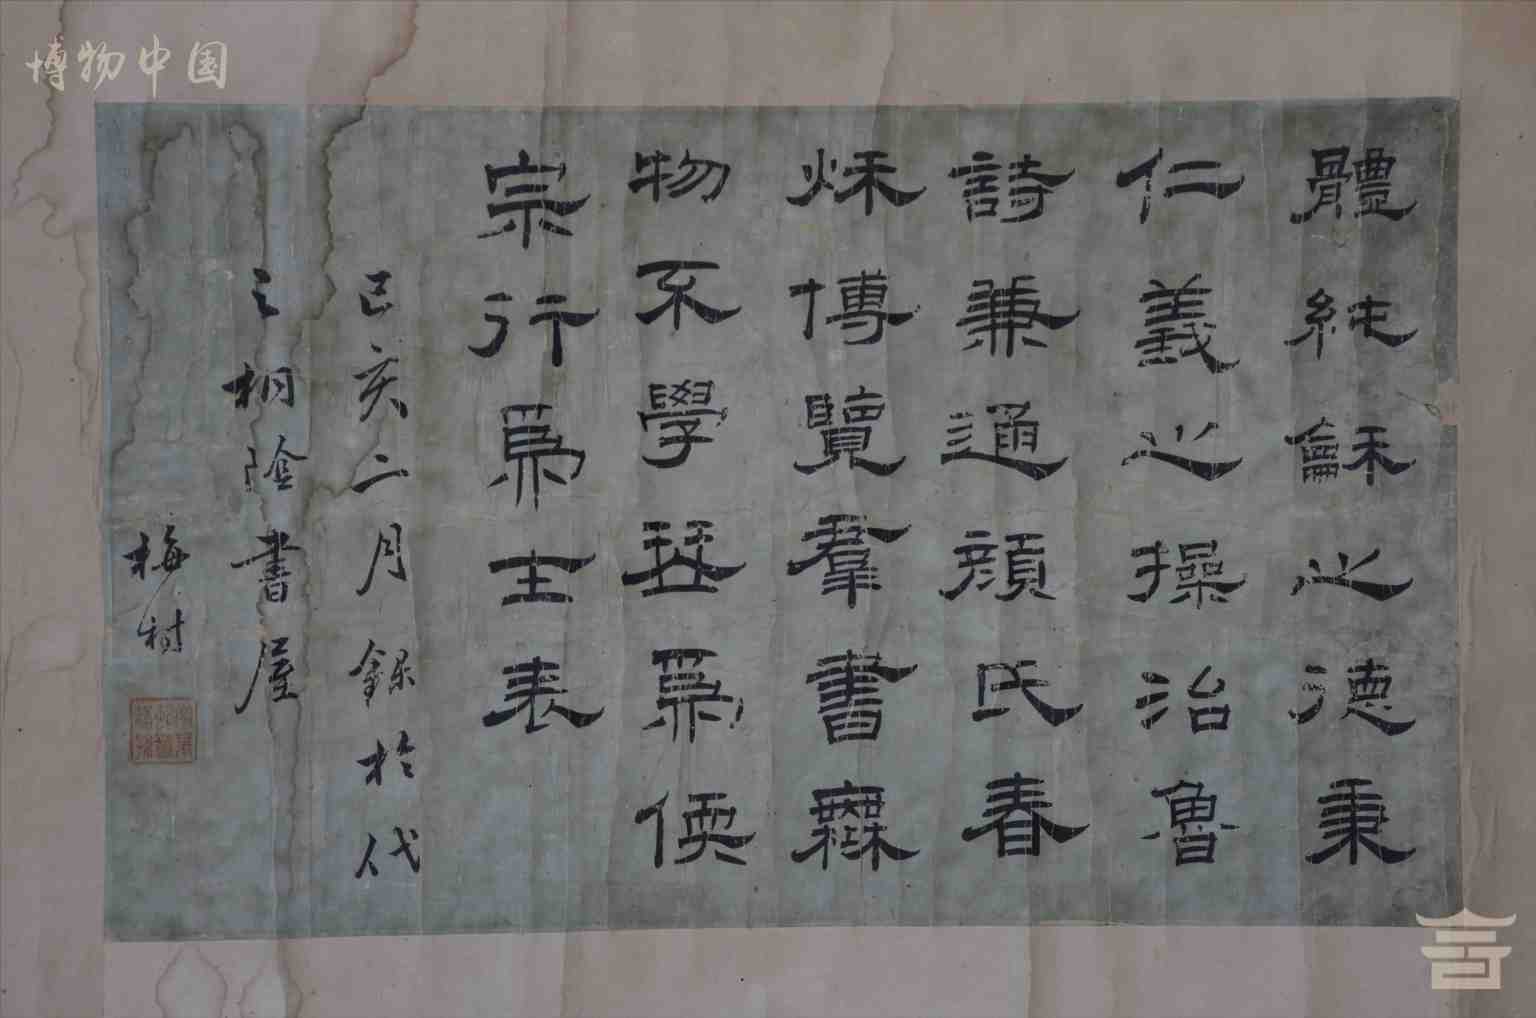 博物中国
體純龢之德秉
仁義之操治魯
詩兼通顔氏春
秌博覽羣書無
物不學爲偄
宗行爲士表
己亥二月錄於代
之桐陰書屋
梅村